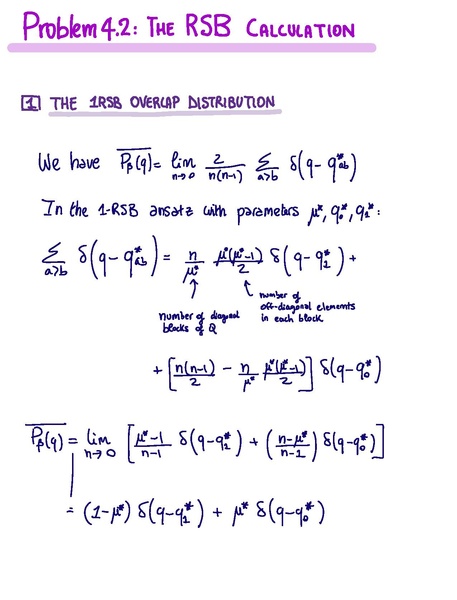 Problem 4.2: THE RSB CALCULATION
1 THE 1RSB OVERLAP DISTRIBUTION
We have \overline{P_β(q)} = lim_{n→0} 2/(n(n-1)) Σ_{a>b} δ(q - q*_{ab})
In the 1-RSB ansatz with parameters μ*, q*_0, q*_1:
Σ_{a>b} δ(q - q*_{ab}) = n/μ* μ*(μ*-1)/2 δ(q - q*_1) +
number of diagonal blocks of Q
number of off-diagonal elements in each block
+ [n(n-1)/2 - n/μ* μ*(μ*-1)/2] δ(q - q*_0)
\overline{P_β(q)} = lim_{n→0} [(μ*-1)/(n-1) δ(q - q*_1) + ((n-μ*)/(n-1)) δ(q - q*_0)]
= (1-μ*) δ(q - q*_1) + μ* δ(q - q*_0)